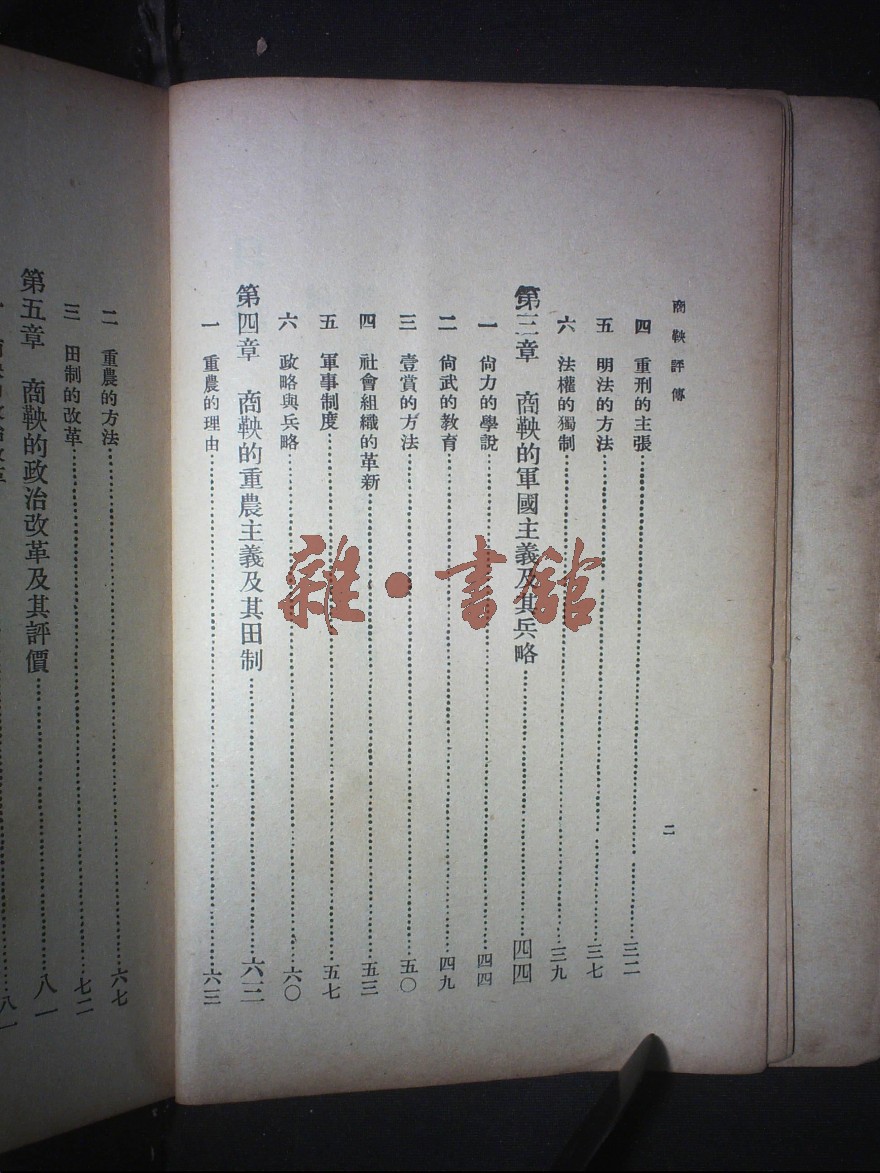 商鞅評傳
四 重刑的主張……三二
五 明法的方法……三七
六 法權的獨制……三九
第三章 商鞅的軍國主義及其兵略……四四
一 尙力的學說……四四
二 尙武的教育……四九
三 壹賞的方法……五〇
四 社會組織的革新……五三
五 軍事制度……五七
六 政略與兵略……六〇
第四章 商鞅的重農主義及其田制……六三
一 重農的理由……六三
二
二 重農的方法……六七
三 田制的改革……七二
第五章 商鞅的政治改革及其評價……八一
八一
雜·書館